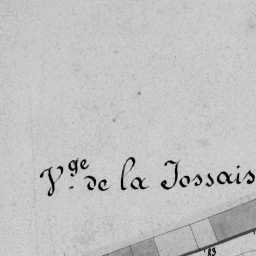 Vge. de la Jossais
83